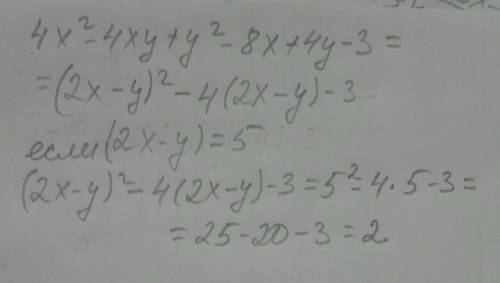 4x²-4xy+y²-8x+4y-3=
=(2x-y)²-4(2x-y)-3
если (2x-y)=5
(2x-y)²-4(2x-y)-3=5²-4·5-3=
=25-20-3=2.